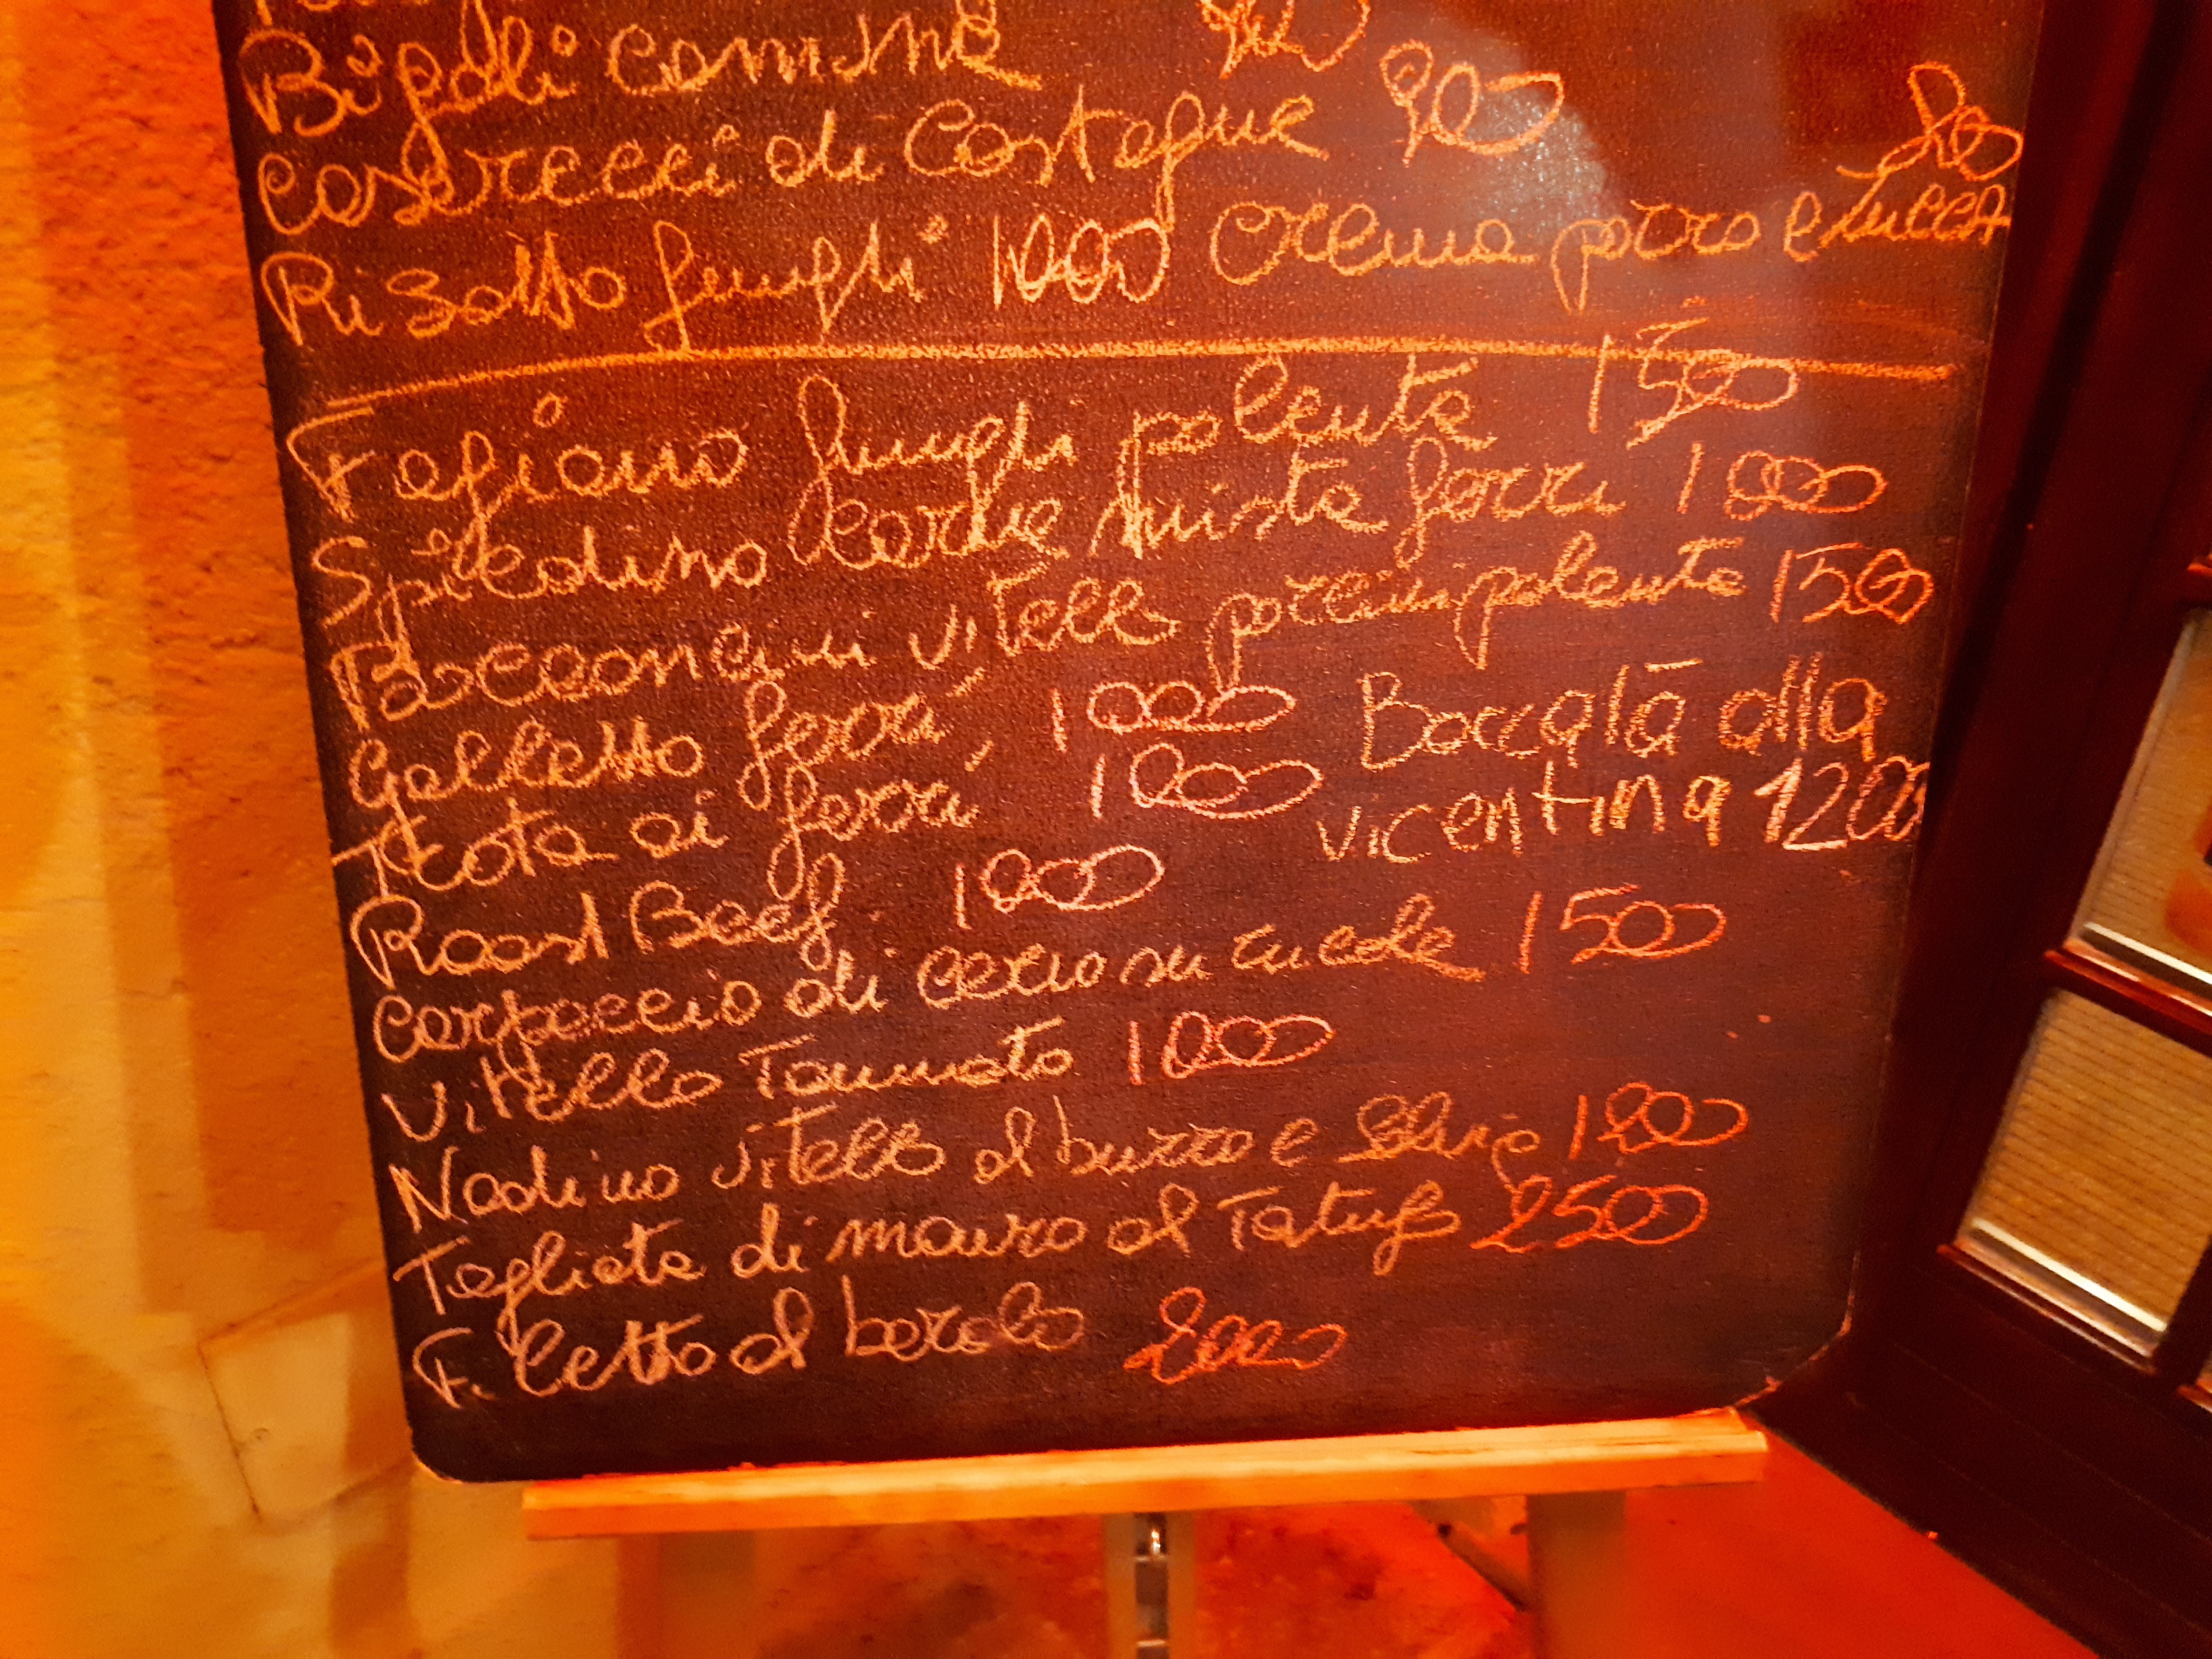 Bigoli
casarecci di Castagne 900
Risotto funghi 1000 crema porro e zucca 800
Fagiano funghi polenta 1500
Spiedino carne mista ferri 1000
Bocconcini vitello porcini polenta 1500
Galletto ferri 1000 Baccalà alla
ai ferri 1000 vicentina 1200
Roast Beef 1000
carpaccio di cervo su rucola 1500
Vitello Tonnato 1000
Nodino vitello al burro e Salvia 1200
Tagliata di manzo al Tartufo 2500
Filetto al barolo 2000